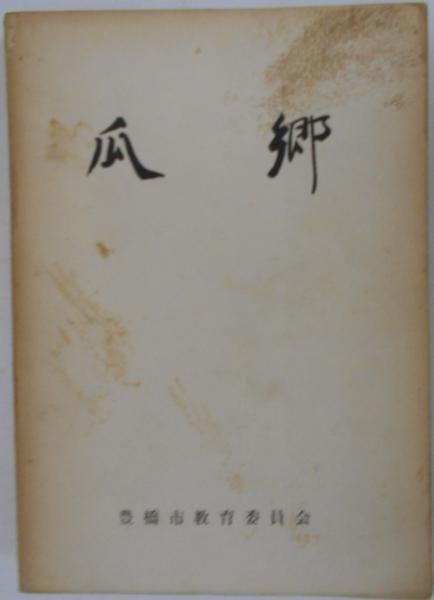 瓜郷
豊橋市教育委員会